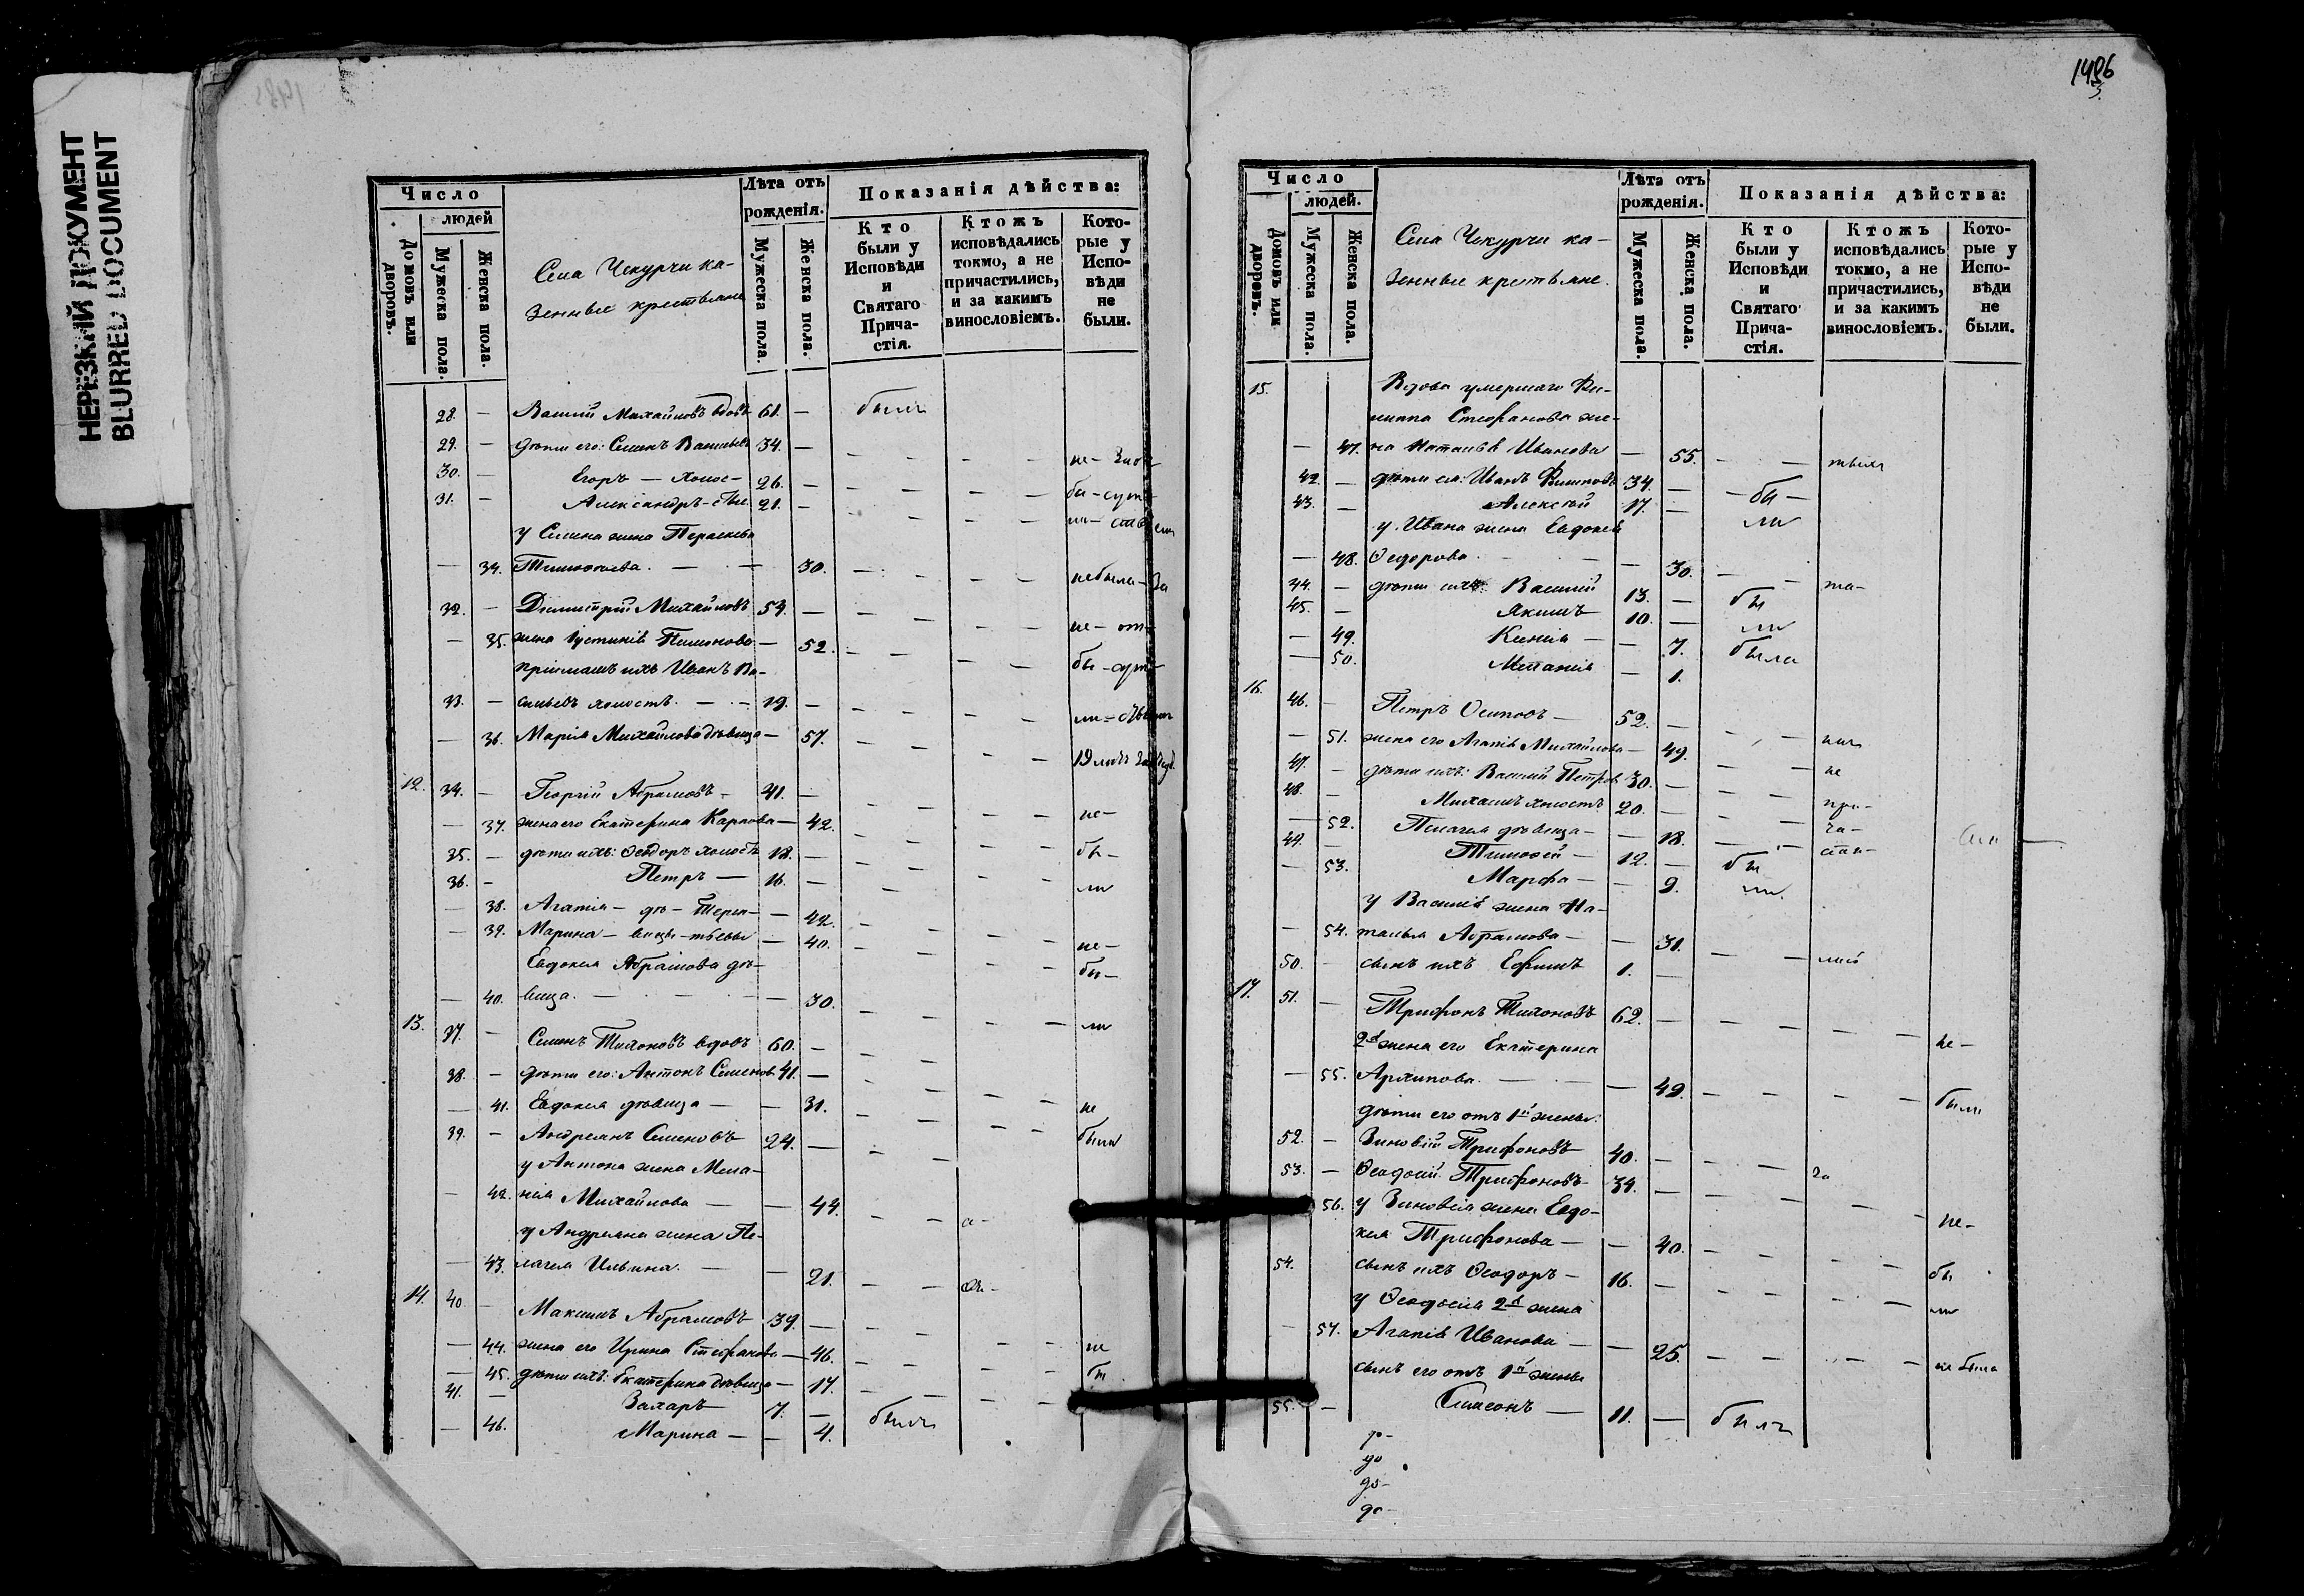 НЕРЕЗКИЙ ДОКУМЕНТ
BLURRED DOCUMENT
1496
Число
людей
Домовъ или дворовъ.
Мужеска пола.
Женска пола.
Села Чекурчи ка-
зенные крестьяне
Лѣта отъ
рожденія.
Мужеска пола.
Женска пола.
Показанія дѣйства:
Кто
были у
Исповѣди
и
Святаго
Прича-
стія.
Ктожъ
исповѣдались
токмо, а не
причастились,
и за какимъ
винословіемъ.
Кото-
рые у
Испо-
вѣди
не
были.
28. — Василій Михайловъ вдовъ 61. — былъ
29. — дѣти его: Семенъ Васильевъ 34. — не
30. — Егоръ — холос- 26. — бы
31. — Александръ 21. — ли
у Семена жена Параскева
— 34. Тимофеева. — 30. небыла
32. — Димитрій Михайловъ 53. — не
— 35. жена Іустинія Пименова — 52. бы
пріемышъ ихъ Иванъ Ва-
33. — сильевъ холостъ. — 19. — ли
— 36. Марія Михайлова дѣвица — 57.
12. 34. — Георгій Абрамовъ — 41. — не-
— 37. жена его Екатерина Карпова — 42. бы-
35. — дѣти ихъ: Ѳеодоръ холостъ 18. — ли
36. — Петръ — 16. —
— 38. Агапія — дѣ- — 42. не-
— 39. Марина — вицы — 40. бы-
Евдокія Абрамова дѣ-
— 40. вица. — 30. ли
13. 37. — Семенъ Тихоновъ вдовъ 60. —
38. — дѣти его: Антонъ Семенов. 41. —
— 41. Евдокія дѣвица — 31. не
39. — Андреянъ Семеновъ 24. — были
у Антона жена Мела-
— 42. нія Михайлова — 44.
у Андреяна жена Пе-
— 43. лагея Ильина. — 21.
14. 40. — Максимъ Абрамовъ 39. —
— 44. жена его Ирина Стефанова — 46. не
— 45. дѣти ихъ: Екатерина дѣвица — 17. бы
41. — Захаръ 7. —
— 46. Марина — 4. были
Число
людей.
Домовъ или дворовъ.
Мужеска пола.
Женска пола.
Села Чекурчи ка-
зенные крестьяне.
Лѣта отъ
рожденія.
Мужеска пола.
Женска пола.
Показанія дѣйства:
Кто
были у
Исповѣди
и
Святаго
Прича-
стія.
Ктожъ
исповѣдались
токмо, а не
причастились,
и за какимъ
винословіемъ.
Кото-
рые у
Испо-
вѣди
не
были.
15. Вдова умершаго Фи-
липпа Стефанова же-
— 47. на Наталья Иванова — 55.
42. — дѣти ея: Иванъ Филиповъ 34. — бы-
43. — Алексѣй 17. — ли
у Ивана жена Евдокія
— 48. Ѳедорова — 30.
44. — дѣти ихъ: Василій 13. — бы
45. — Якимъ 10. — ли
— 49. Ксенія — 7. была
— 50. Меланія — 1.
16. 46. — Петръ Осиповъ — 52. —
— 51. жена его Агапія Михайлова — 49.
47. — дѣти ихъ: Василій Петров. 30. — не
48. — Михаилъ холостъ 20. — при-
— 52. Пелагея дѣвица — 18. ча-
49. — Тимофей — 12. — бы
— 53. Марфа — 9. ли
у Василія жена На-
— 54. талья Абрамова — 31.
50. — сынъ ихъ Ефимъ 1. —
17. 51. — Трифонъ Тихоновъ 62. — не-
2я жена его Екатерина
— 55. Архипова. — 49. были
дѣти его отъ 1й жены:
52. — Зиновій Трифоновъ 40. —
53. — Ѳеодосій Трифоновъ 34. — не-
56. у Зиновія жена Евдо-
кія Трифонова — 40. бы
54. сынъ ихъ Ѳеодоръ — 16. — ли
у Ѳеодосія 2я жена
— 57. Агапія Иванова — 25. не была
сынъ его отъ 1й жены
55. — Симеонъ — 11. — былъ